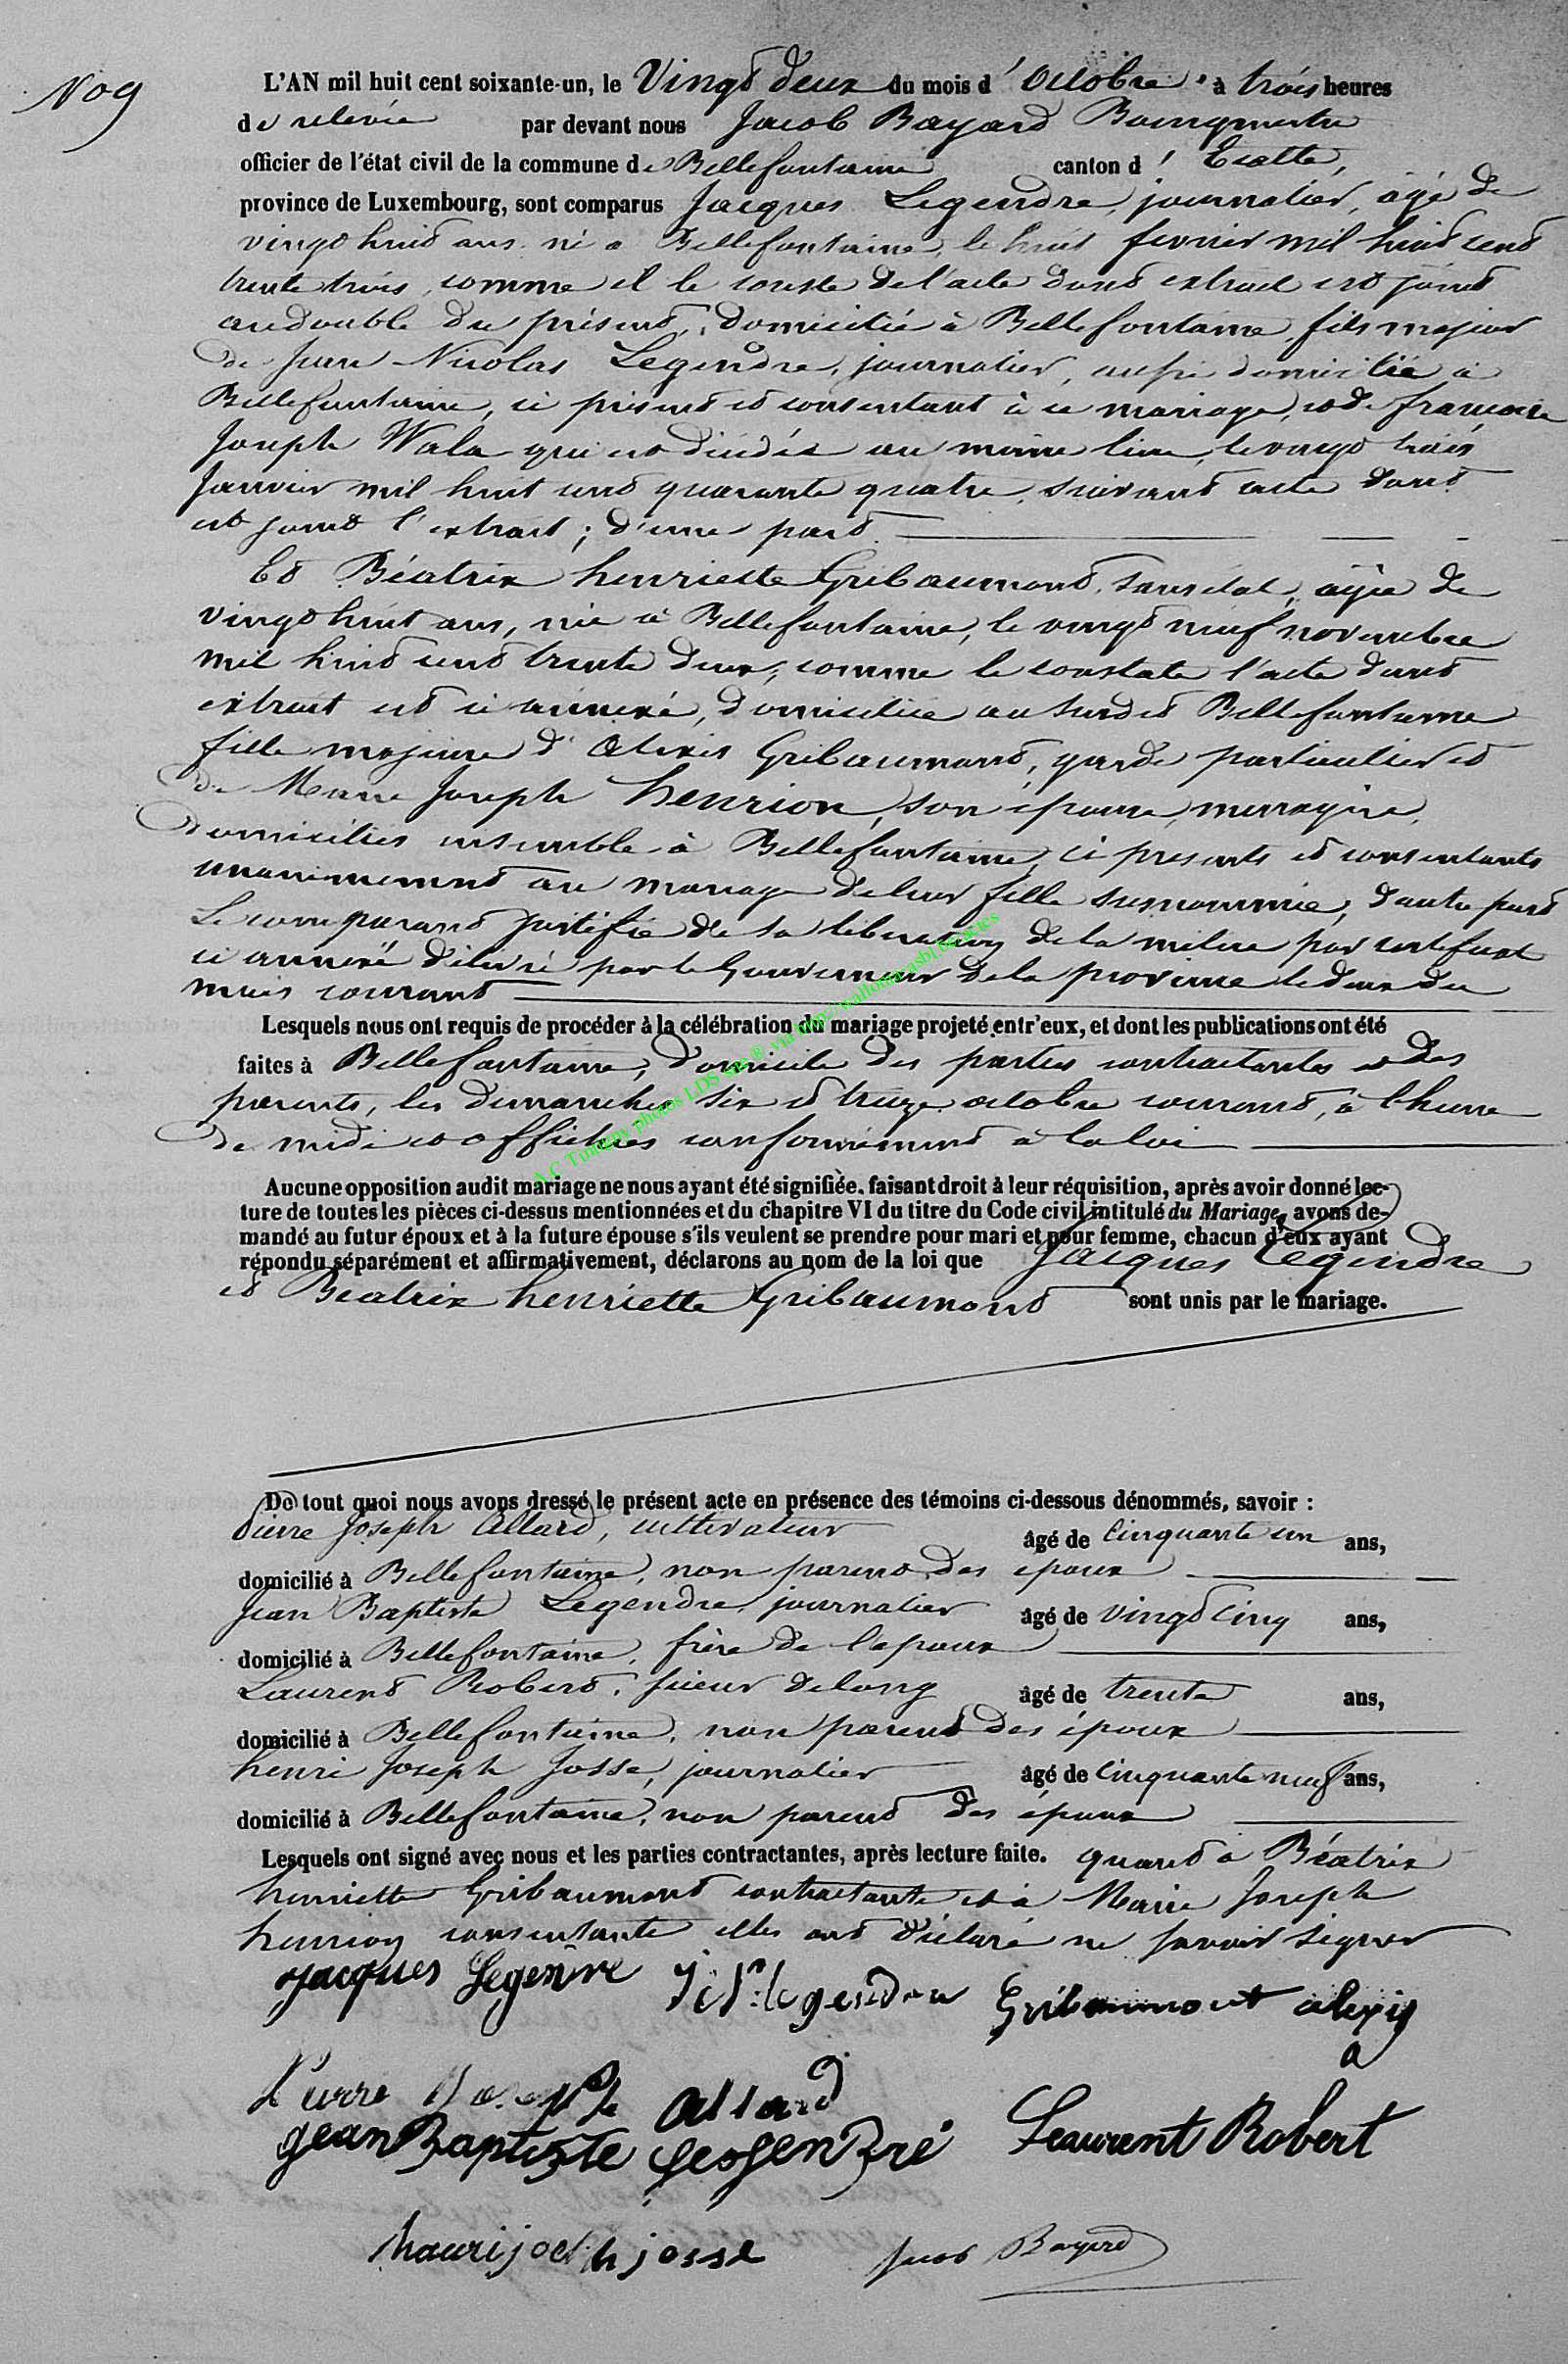 No 9
L'AN mil huit cent soixante-un, le Vingt deux du mois d' Octobre à trois heures
de relevée par devant nous Jacob Bayard Bourgmestre
officier de l'état civil de la commune de Bellefontaine canton d' Etalle,
province de Luxembourg, sont comparus Jacques Legendre, journalier, âgé de
vingt huit ans né a Bellefontaine, le huit fevrier mil huit cent
trente trois, comme il le conste de l'acte dont extrait est joint
au double du présent, domicilié à Bellefontaine, fils majeur
de Jean Nicolas Legendre, journalier, aussi domicilié à
Bellefontaine, ci présent et consentant à ce mariage, et de françoise
Joseph Wala qui est décédée au même lieu, le vingt trois
Janvier mil huit cent quarante quatre, suivant acte dont
est joint l'extrait; d'une part.
Et Béatrix henriette Gribaumont, sans état, âgée de
vingt huit ans, née à Bellefontaine, le vingt neuf novembre
mil huit cent trente deux, comme le constate l'acte dont
extrait est ci annexé, domiciliée au susdit Bellefontaine
fille majeure d'Alexis Gribaumont, garde particulier et
de Marie Joseph henrion, son épouse, menagère,
domiciliés ensemble à Bellefontaine, ci presents et consentants
unanimement au mariage de leur fille susnommée, d'autre part
Le comparant justifie de sa libération de la milice par certificat
ci annexé délivré par le Gouverneur de la province le deux du
mois courant
Lesquels nous ont requis de procéder à la célébration du mariage projeté entr'eux, et dont les publications ont été
faites à Bellefontaine, domicile des parties contractantes et des
parents, les dimanches six et treize octobre courant, à l'heure
de midi et affichées conformément à la loi
A.C Tumeny photos LDS via http://wallonica asbl
Aucune opposition audit mariage ne nous ayant été signifiée, faisant droit à leur réquisition, après avoir donné lec-
ture de toutes les pièces ci-dessus mentionnées et du chapitre VI du titre du Code civil intitulé du Mariage, avons de-
mandé au futur époux et à la future épouse s'ils veulent se prendre pour mari et pour femme, chacun d'eux ayant
répondu séparément et affirmativement, déclarons au nom de la loi que Jacques Legendre
et Beatrix henriette Gribaumont sont unis par le mariage.
De tout quoi nous avons dressé le présent acte en présence des témoins ci-dessous dénommés, savoir :
Pierre Joseph Allard, cultivateur âgé de Cinquante un ans,
domicilié à Bellefontaine, non parent des époux
Jean Baptiste Legendre, journalier âgé de vingt cinq ans,
domicilié à Bellefontaine, frère de l'epoux
Laurent Robert, scieur de long âgé de trente ans,
domicilié à Bellefontaine, non parent des époux
henri Joseph Josse, journalier âgé de Cinquante neuf ans,
domicilié à Bellefontaine, non parent des époux
Lesquels ont signé avec nous et les parties contractantes, après lecture faite. quant à Béatrix
henriette Gribaumont contractante et à Marie Joseph
henrion consentante elles ont déclaré ne savoir signer
Jacques Legendre J: N: legendre Gribaumont alexis
Pierre Joseph Allard
Jean Baptiste Legendre Leaurent Robert
hauri joseph josse Jacob Bayard